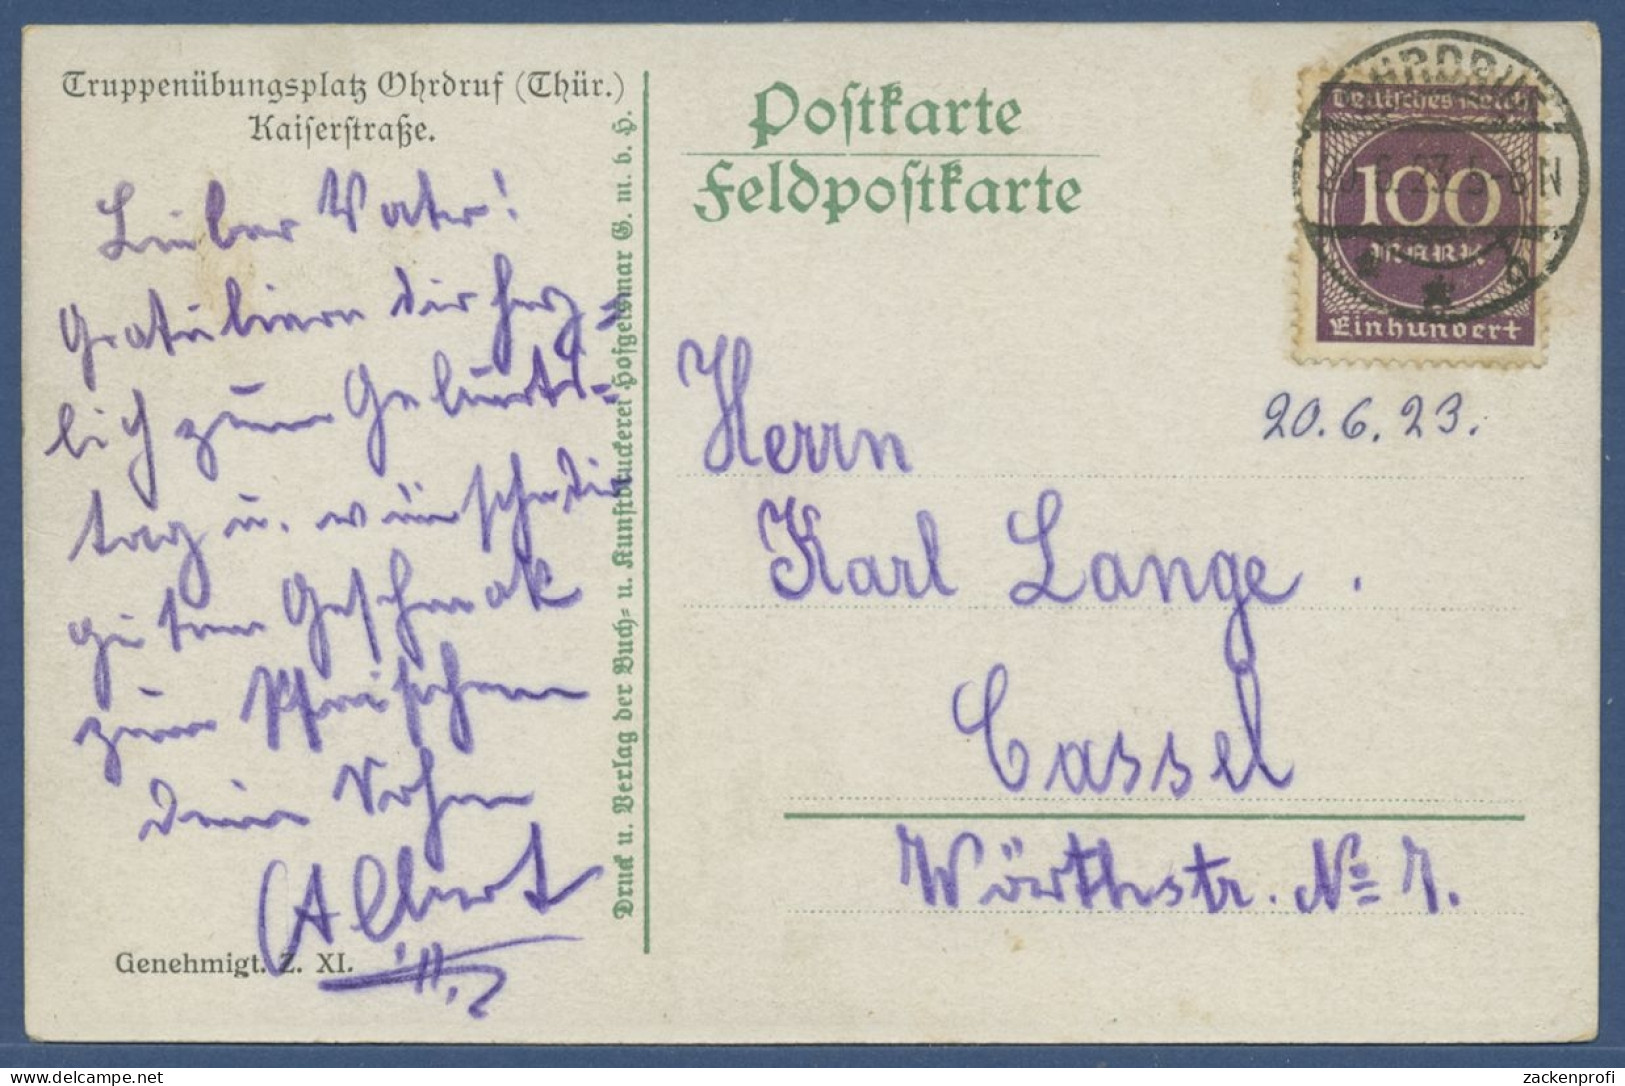 Truppenübungsplatz Ohrdruf (Thür.)
Kaiserstraße.
Lieber Vater!
Gratuliere dir herz=
lich zum Geburts=
tag u. wünsche dir
guten Geschmack
zum
Dein Sohn
Albert
Genehmigt. Z. XI.
Druck u. Verlag der Buch= u. Kunstdruckerei Hofgeismar G. m. b. H.
Postkarte
Feldpostkarte
Deutsches Reich
100
MARK
Einhundert
OHRDRUF
20.6.23. 5-6 N
* b
20. 6. 23.
Herrn
Karl Lange.
Cassel
Wörthstr. No 1.
delcampe.net
zackenprofi